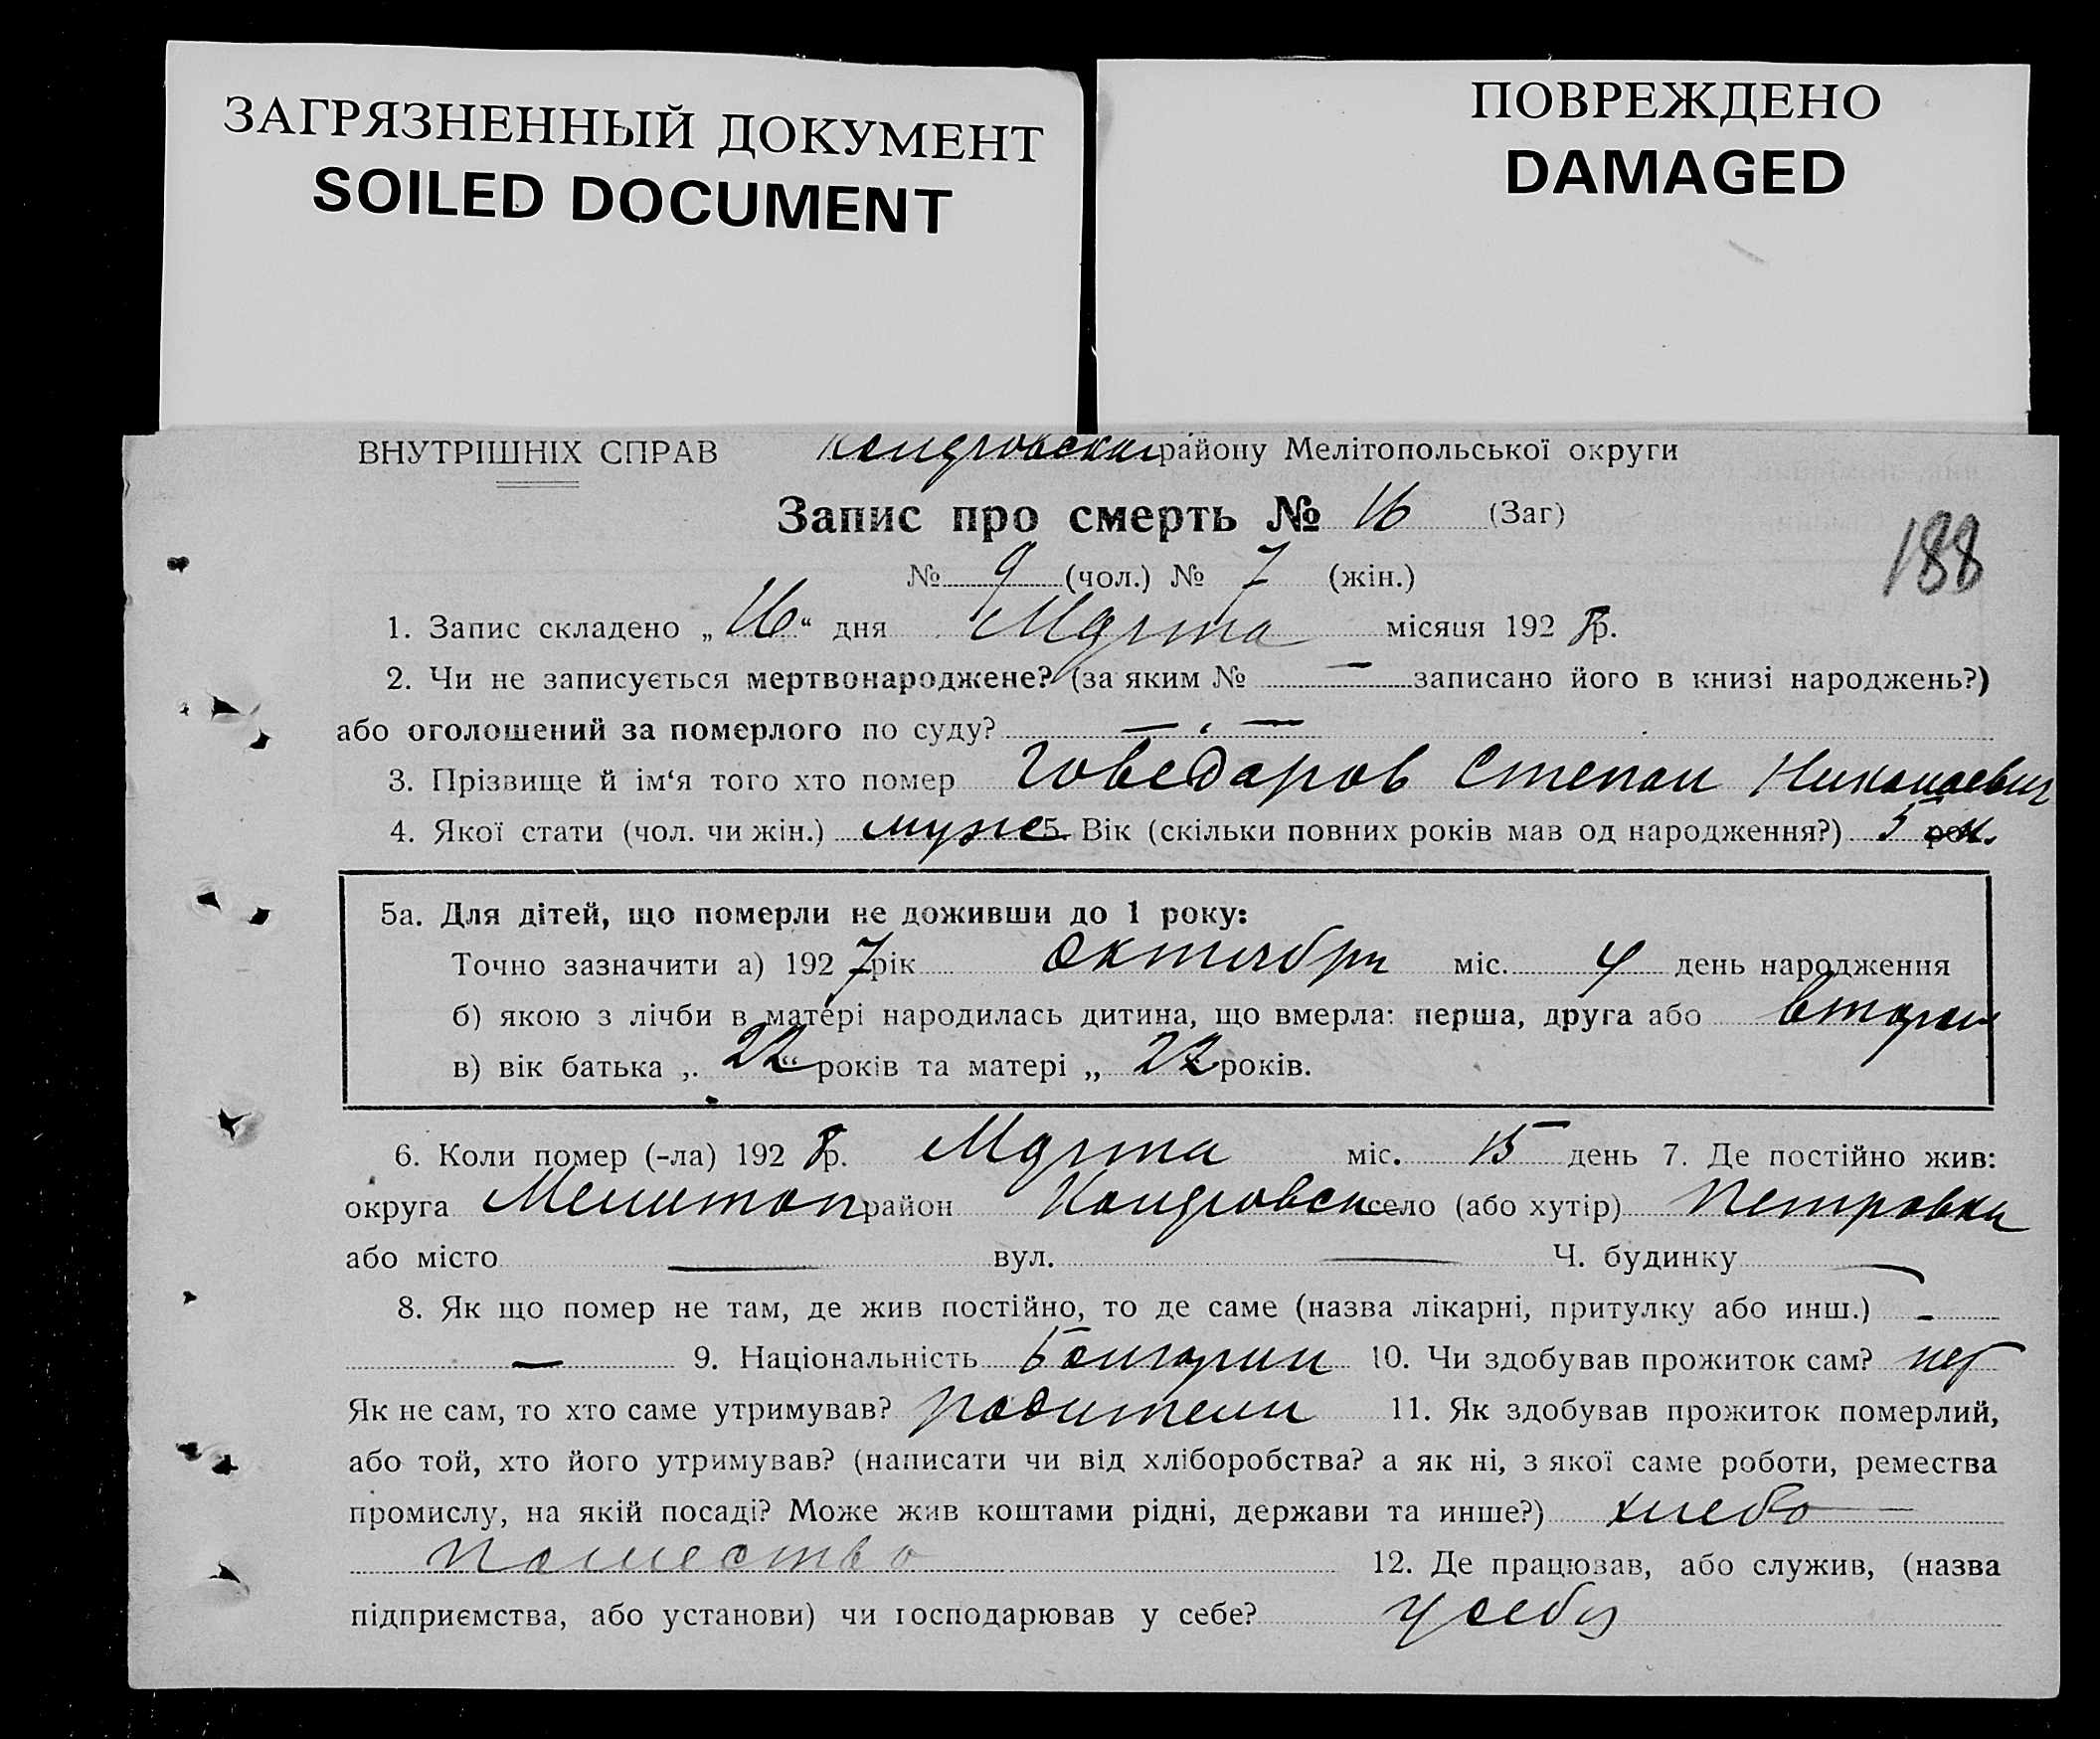 ЗАГРЯЗНЕННЫЙ ДОКУМЕНТ
SOILED DOCUMENT
ПОВРЕЖДЕНО
DAMAGED
ВНУТРІШНІХ СПРАВ району Мелітопольської округи
Запис про смерть № 16 (Заг)
188
№ 9 (чол.) № 7 (жін.)
1. Запис складено „16“ дня Марта місяця 1928 р.
2. Чи не записується мертвонароджене? (за яким № — записано його в книзі народжень?)
або оголошений за померлого по суду? — —
3. Прізвище й ім‘я того хто помер Говедаров Степан Николаевич
4. Якої стати (чол. чи жін.) муже 5. Вік (скільки повних років мав од народження?) 5 м.
5а. Для дітей, що померли не доживши до 1 року:
Точно зазначити а) 1927 рік Октября міс. 4 день народження
б) якою з лічби в матері народилась дитина, що вмерла: перша, друга або вторая
в) вік батька „ 22 “ років та матері „ 22 років.
6. Коли помер (-ла) 1928 р. Марта міс. 15 день 7. Де постійно жив:
округа Мелитоп район село (або хутір) Петровка
або місто — вул. — Ч. будинку —
8. Як що помер не там, де жив постійно, то де саме (назва лікарні, притулку або инш.) —
— 9. Національність Болгарин 10. Чи здобував прожиток сам? нет
Як не сам, то хто саме утримував? родители 11. Як здобував прожиток померлий,
або той, хто його утримував? (написати чи від хліборобства? а як ні, з якої саме роботи, ремества
промислу, на якій посаді? Може жив коштами рідні, держави та инше?) хлебо—
пашество 12. Де працював, або служив, (назва
підприємства, або установи) чи господарював у себе? у себя